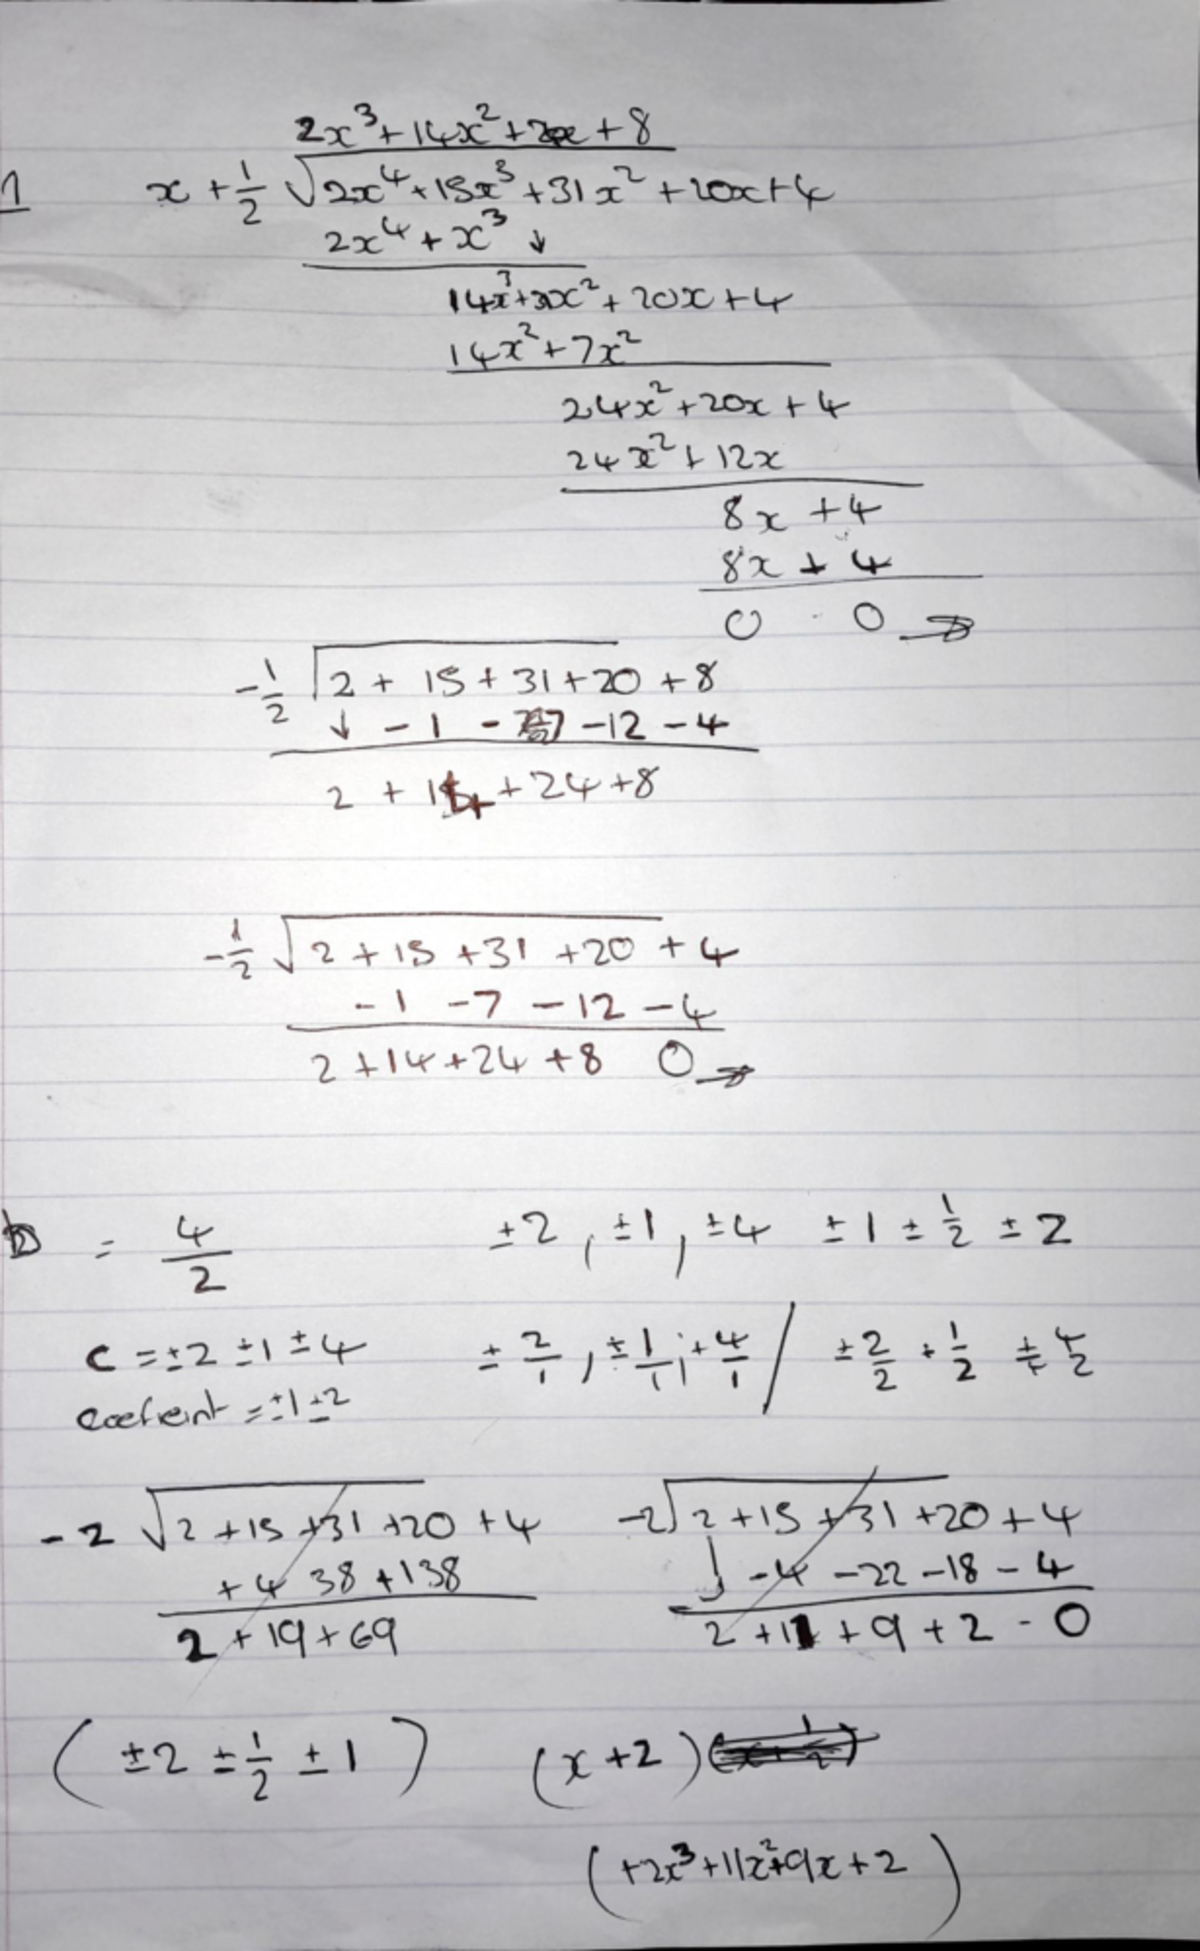 2x³+14x²+ +8
1 x+1/2 √2x⁴+15x³+31x²+20x+4
2x⁴+x³ ↓
14x³+ x²+20x+4
14x²+7x²
24x²+20x+4
24x²+12x
8x+4
8x+4
0 0
-1/2 2+15+31+20+8
↓ -1 -7 -12 -4
2+14+24+8
-1/2 √2+15+31+20+4
-1 -7 -12 -4
2+14+24+8 0
b = 4/2 ±2, ±1, ±4 ±1 ±1/2 ±2
c=±2 ±1 ±4 ±2/1, ±1/1, +4/1 / ±2/2 + 1/2 ± 4/2
coefient = ±1 ±2
-2 √2+15+31+20+4 -2 2+15+31+20+4
+4 38+138 ↓ -4 -22 -18 -4
2+19+69 2+11+9+2-0
(±2 ±1/2 ±1) (x+2)
(+2x³+11x²+9x+2)